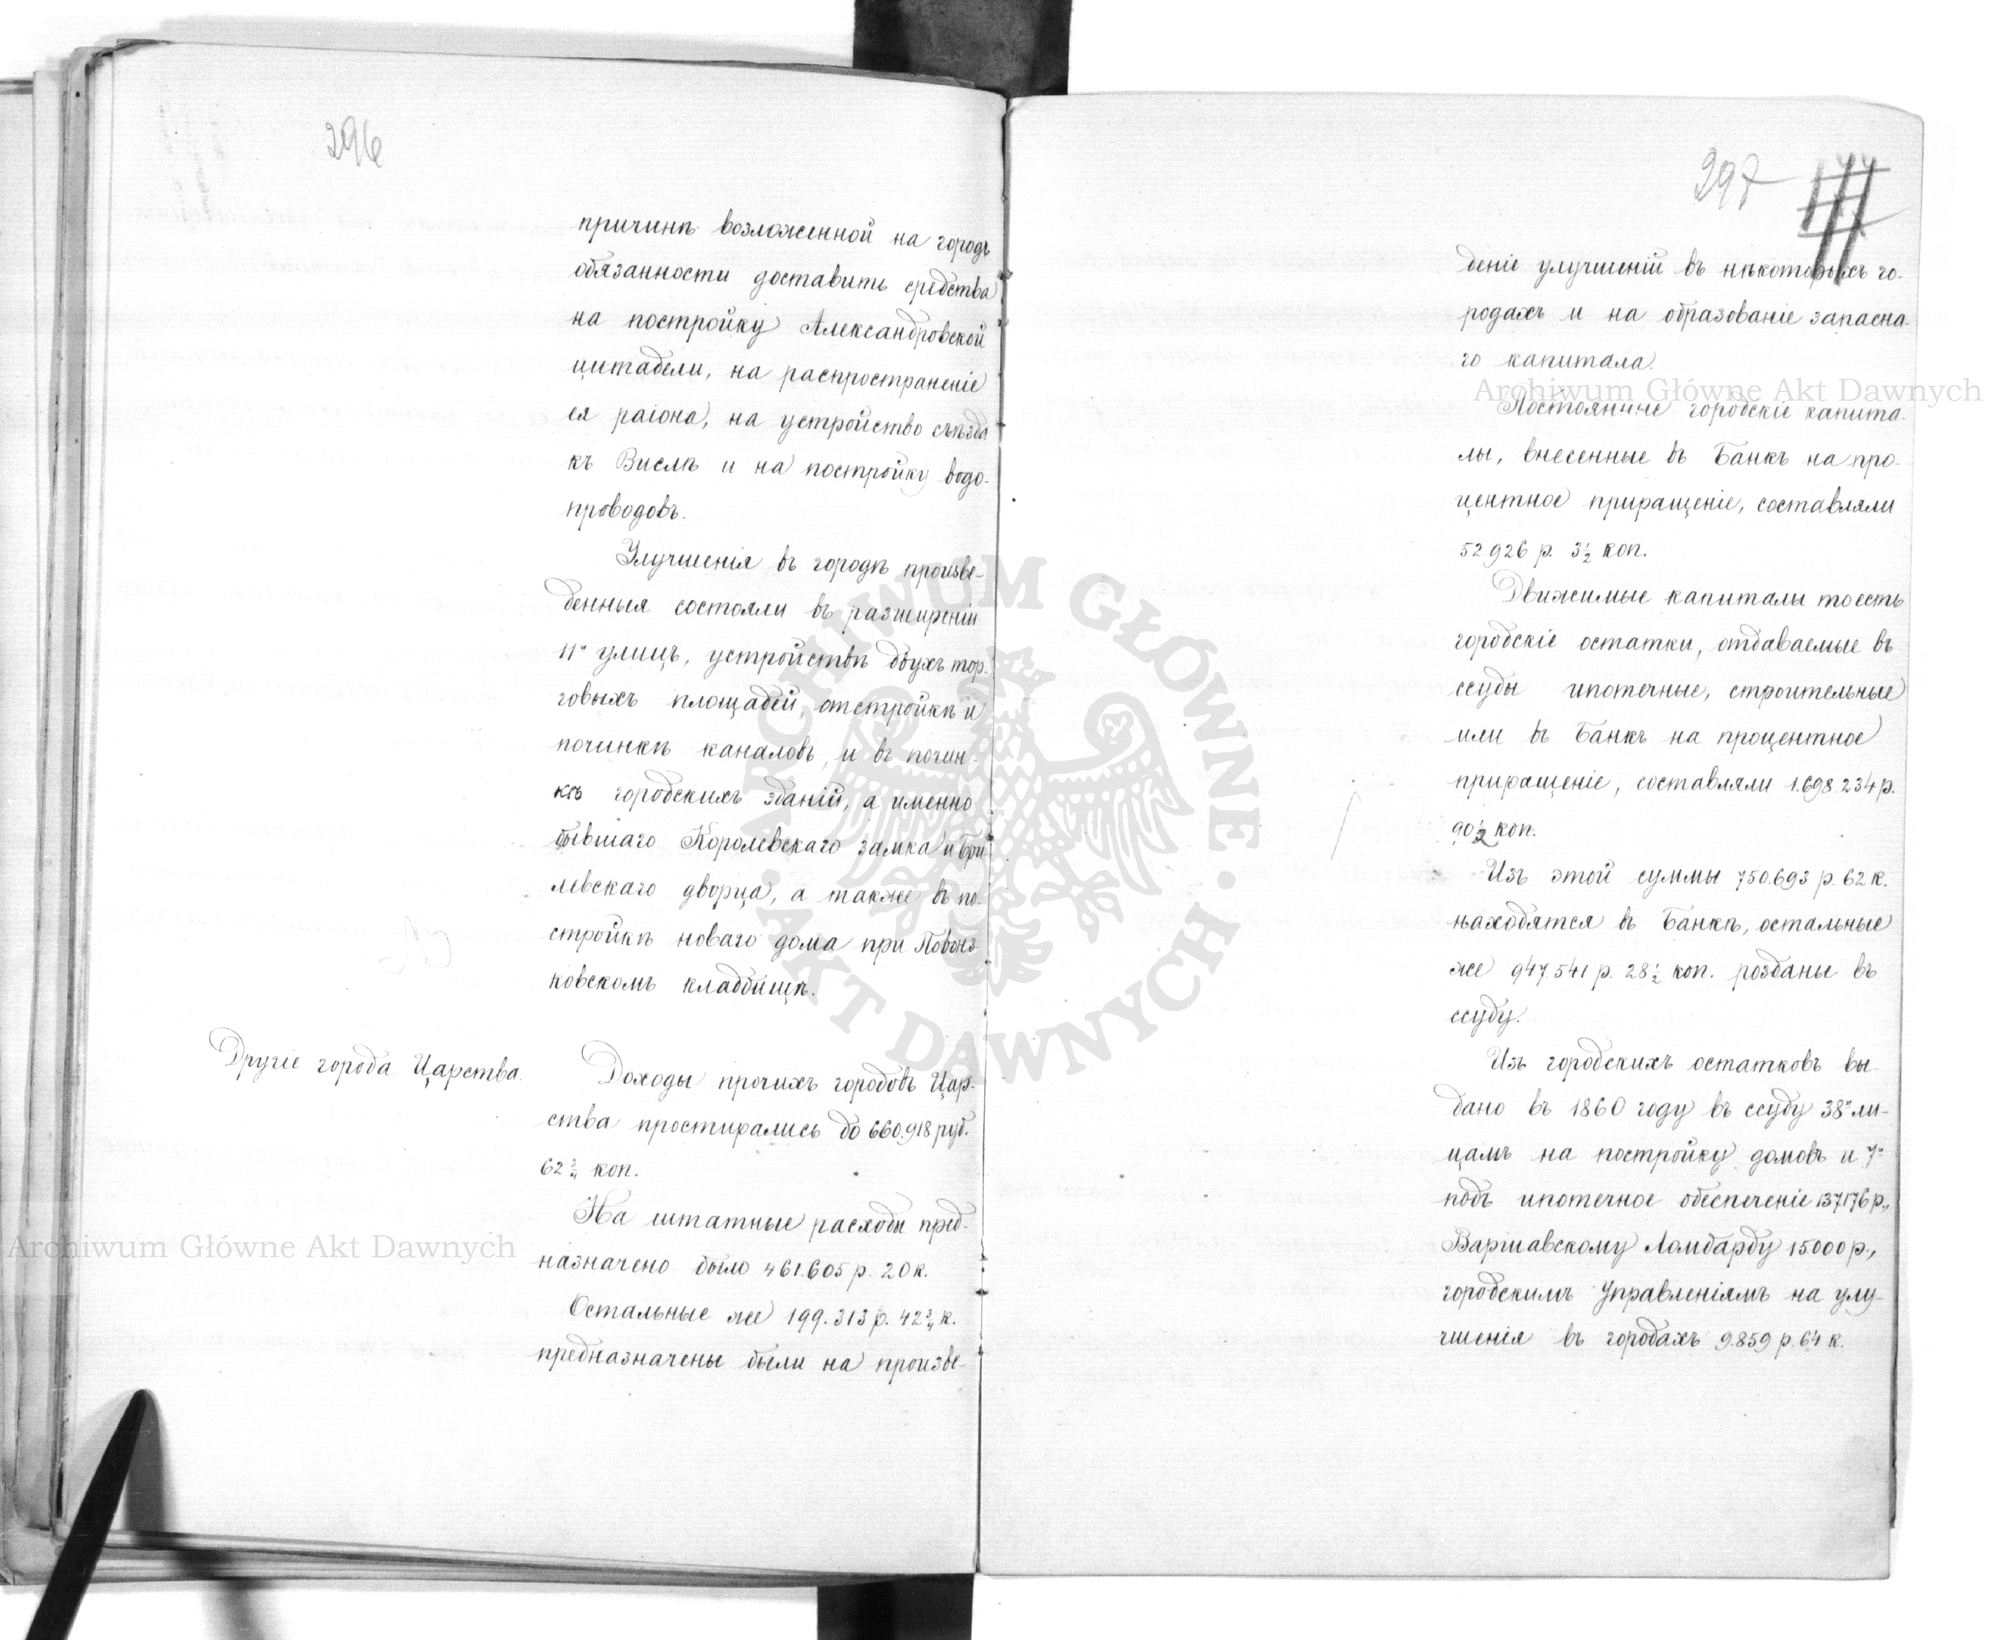 296
причинѣ возложенной на городъ
обязанности доставить средства
на постройку Александровской
цитадели, на распространеніе
ея раіона, на устройство съѣзда
къ Вислѣ и на постройку водо-
проводовъ.
Улучшенія въ городѣ произве-
денныя состояли въ разширеніи
11и улицъ, устройствѣ двухъ тор-
говыхъ площадей, отстройкѣ и
починкѣ каналовъ, и въ почин-
кѣ городскихъ зданій, а именно
бывшаго Королевскаго замка и Брю
левскаго дворца, а также въ по-
стройкѣ новаго дома при Повонз-
ковскомъ кладбищѣ.
Другіе города Царства.
Доходы прочихъ городовъ Цар-
ства простирались до 660.918 руб.
62 3/4 коп.
На штатные расходы пред-
назначено было 461.605 р. 20 к.
Остальные же 199.313 р. 42 3/4 к.
предназначены были на произве-
297
деніе улучшеній въ нѣкоторыхъ го-
родахъ и на образованіе запасна-
го капитала.
Постоянные городскіе капита-
лы, внесенные въ Банкъ на про-
центное приращеніе, составляли
52.926 р. 3 1/2 коп.
Движимые капиталы то есть
городскіе остатки, отдаваемые въ
ссуды ипотечные, строительные
или въ Банкъ на процентное
приращеніе, составляли 1.698.234 р.
90 1/2 коп.
Изъ этой суммы 750.693 р. 62 к.
находятся въ Банкѣ, остальные
же 947.541 р. 28 1/2 коп. розданы въ
ссуду.
Изъ городскихъ остатковъ вы-
дано въ 1860 году въ ссуду 38и ли-
цамъ на постройку домовъ и 7и
подъ ипотечное обеспеченіе 137.176 р.,
Варшавскому Ломбарду 15.000 р.,
городскимъ Управленіямъ на улу-
чшенія въ городахъ 9.859 р. 64 к.
Archiwum Główne Akt Dawnych
Archiwum Główne Akt Dawnych
ARCHIWUM GŁÓWNE · AKT DAWNYCH ·